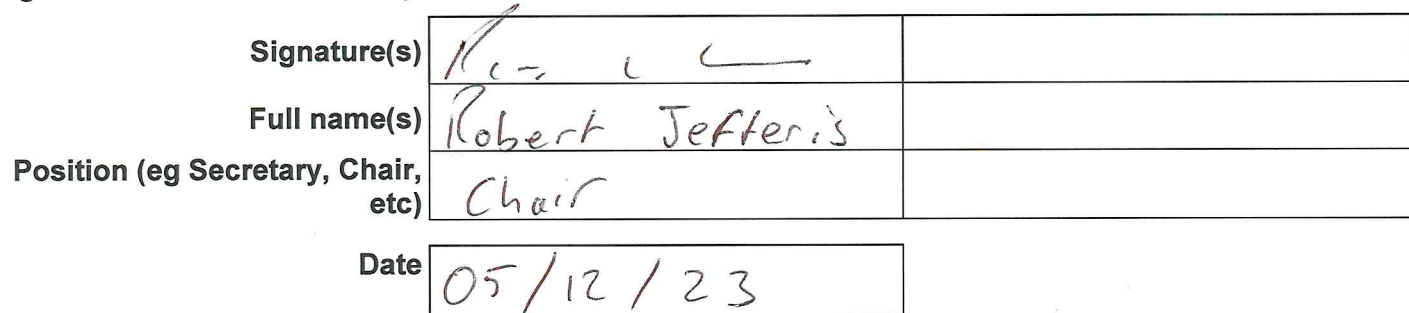 Signature(s)
Full name(s) Robert Jefferis
Position (eg Secretary, Chair,
etc) Chair
Date 05/12/23